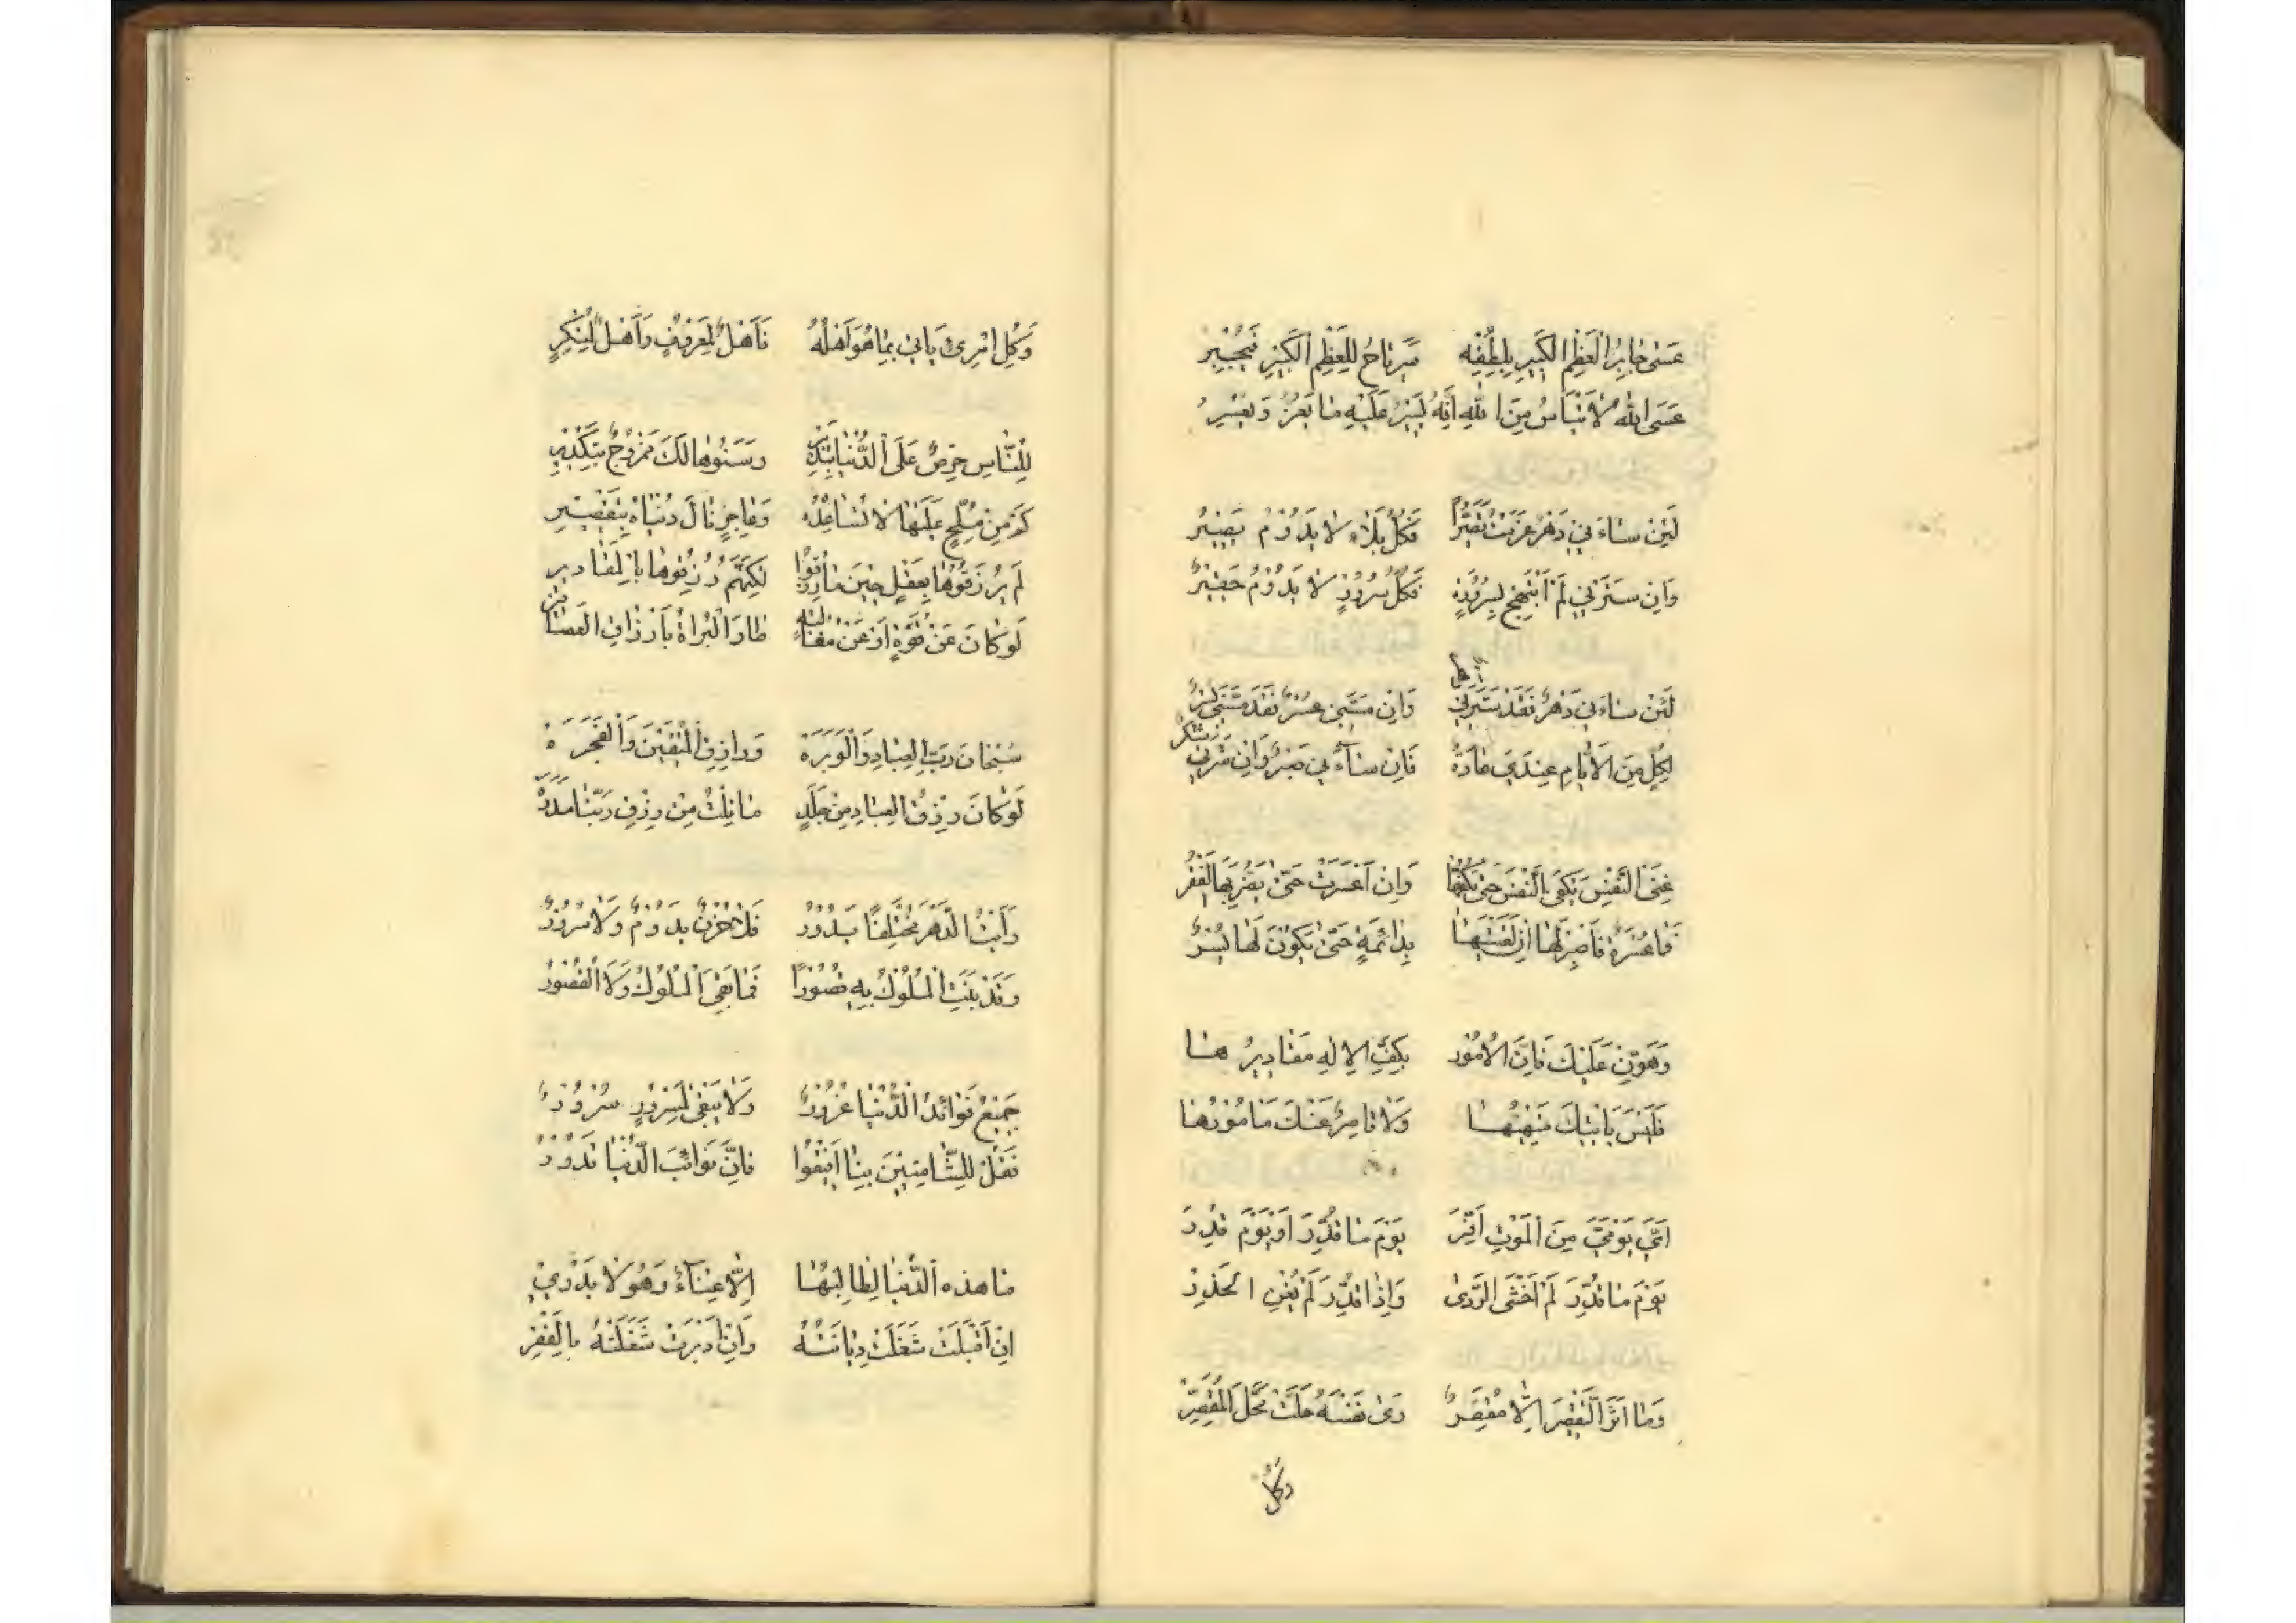 عَسَى جَابِرُ الْعَظْمِ الْكَسِيرِ بِلُطْفِهِ سَيَرْتَاحُ لِلْعَظْمِ الْكَسِيرِ فَيَجْبُرُ
عَسَى اللهُ لَا تَيْأَسْ مِنَ اللهِ اَنَّهُ يَسِيرٌ عَلَيْهِ مَا يَعِزُّ وَيَعْسِرُ
لَئِنْ سَاءَنِي دَهْرٌ عَزَمْتُ تَصَبُّرًا فَكُلُّ بَلَاءٍ لَا يَدُومُ يَصِيرُ
وَاِنْ سَرَّنِي لَمْ اَبْتَهِجْ بِسُرُورِهِ فَكُلُّ سُرُورٍ لَا يَدُومُ حَقِيرُ
لَئِنْ سَاءَنِي دَهْرٌ فَقَدْ سَرَّنِي وَاِنْ مَسَّنِي عُسْرٌ فَقَدْ مَسَّنِي يُسْرُ
لِكُلٍّ مِنَ الْاَيَّامِ عِنْدِي عَادَةٌ فَاِنْ سَاءَنِي صَبْرٌ وَاِنْ سَرَّنِي شُكْرُ
غِنَى النَّفْسِ يَكْفِي النَّفْسَ حَتَّى يَكُفَّهَا وَاِنْ اَعْسَرَتْ حَتَّى يَضُرَّ بِهَا الْفَقْرُ
فَمَا عُسْرَةٌ فَاصْبِرْ لَهَا اِنْ لَقِيتَهَا بِدَائِمَةٍ حَتَّى يَكُونَ لَهَا يُسْرُ
وَهَوِّنْ عَلَيْكَ فَاِنَّ الْاُمُورَ بِكَفِّ الْاِلَهِ مَقَادِيرُهَا
فَلَيْسَ يَاْتِيكَ مَنْهِيُّهَا وَلَا قَاصِرٌ عَنْكَ مَاْمُورُهَا
اَيَّ يَوْمَيَّ مِنَ الْمَوْتِ اَفِرّ يَوْمَ مَا قُدِّرَ اَوْ يَوْمَ قُدِرَ
يَوْمَ مَا قُدِّرَ لَمْ اَخْشَى الرَّدَى وَاِذَا قُدِّرَ لَمْ يُغْنِ الْحَذَرْ
وَمَا اَثَّرَ التَّقْصِيرَ اِلَّا مُقَصِّرٌ رَاى نَفْسَهُ حَلَّتْ مَحَلَّ الْمُقَصِّرِ
وَكُلُّ
وَكُلُّ امْرِئٍ يَاْتِي بِمَا هُوَ اَهْلُهُ فَاَهْلٌ لِمَعْرُوفٍ وَاَهْلٌ لِمُنْكَرِ
لِلنَّاسِ حِرْصٌ عَلَى الدُّنْيَا بِتَدْبِيرِ وَصَفْوُهَا لَكَ مَمْزُوجٌ بِتَكْدِيرِ
كَمْ مِنْ مُلِحٍّ عَلَيْهَا لَا تُسَاعِدُهُ وَعَاجِزٍ نَالَ دُنْيَاهُ بِتَقْصِيرِ
لَمْ يُرْزَقُوهَا بِعَقْلٍ حِينَ مَا رُزِقُوا لَكِنَّهُمْ رُزِقُوهَا بِالْمَقَادِيرِ
لَوْ كَانَ عَنْ قُوَّةٍ اَوْ عَنْ مُغَالَبَةٍ طَارَ الْبُزَاةُ بِاَرْزَاقِ الْعَصَافِيرِ
سُبْحَانَ رَبِّ الْعِبَادِ وَالْوَبَرَه وَرَازِقِ الْمُتَّقِينَ وَالْفَجَرَه
لَوْ كَانَ رِزْقُ الْعِبَادِ مِنْ جَلَدٍ مَا نِلْتُ مِنْ رِزْقِ رَبِّنَا مَدَرَه
رَاَيْتُ الدَّهْرَ مُخْتَلِفًا يَدُورُ فَلَا حُزْنٌ يَدُومُ وَلَا سُرُورُ
وَقَدْ بَنَتِ الْمُلُوكُ بِهِ قُصُورًا فَمَا بَقِيَ الْمُلُوكُ وَلَا الْقُصُورُ
جَمِيعُ فَوَائِدُ الدُّنْيَا غُرُورٌ وَلَا يَبْقَى لِمَسْرُورٍ سُرُورُ
فَقُلْ لِلشَّامِتِينَ بِنَا اَفِيقُوا فَاِنَّ نَوَائِبَ الدُّنْيَا تَدُورُ
مَا هَذِهِ الدُّنْيَا لِطَالِبِهَا اِلَّا عَنَاءٌ وَهُوَ لَا يَدْرِي
اِنْ اَقْبَلَتْ شَغَلَتْ دِيَانَتَهُ وَاِنْ اَدْبَرَتْ شَغَلَتْهُ بِالْفَقْرِ